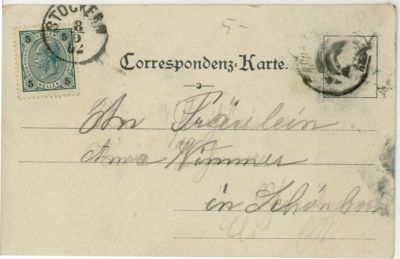 STOCKERN
8
2
5 5
5 HELLER 5
5-
Correspondenz-Karte.
An Fräulein
Anna Wimmer
in Schönbe